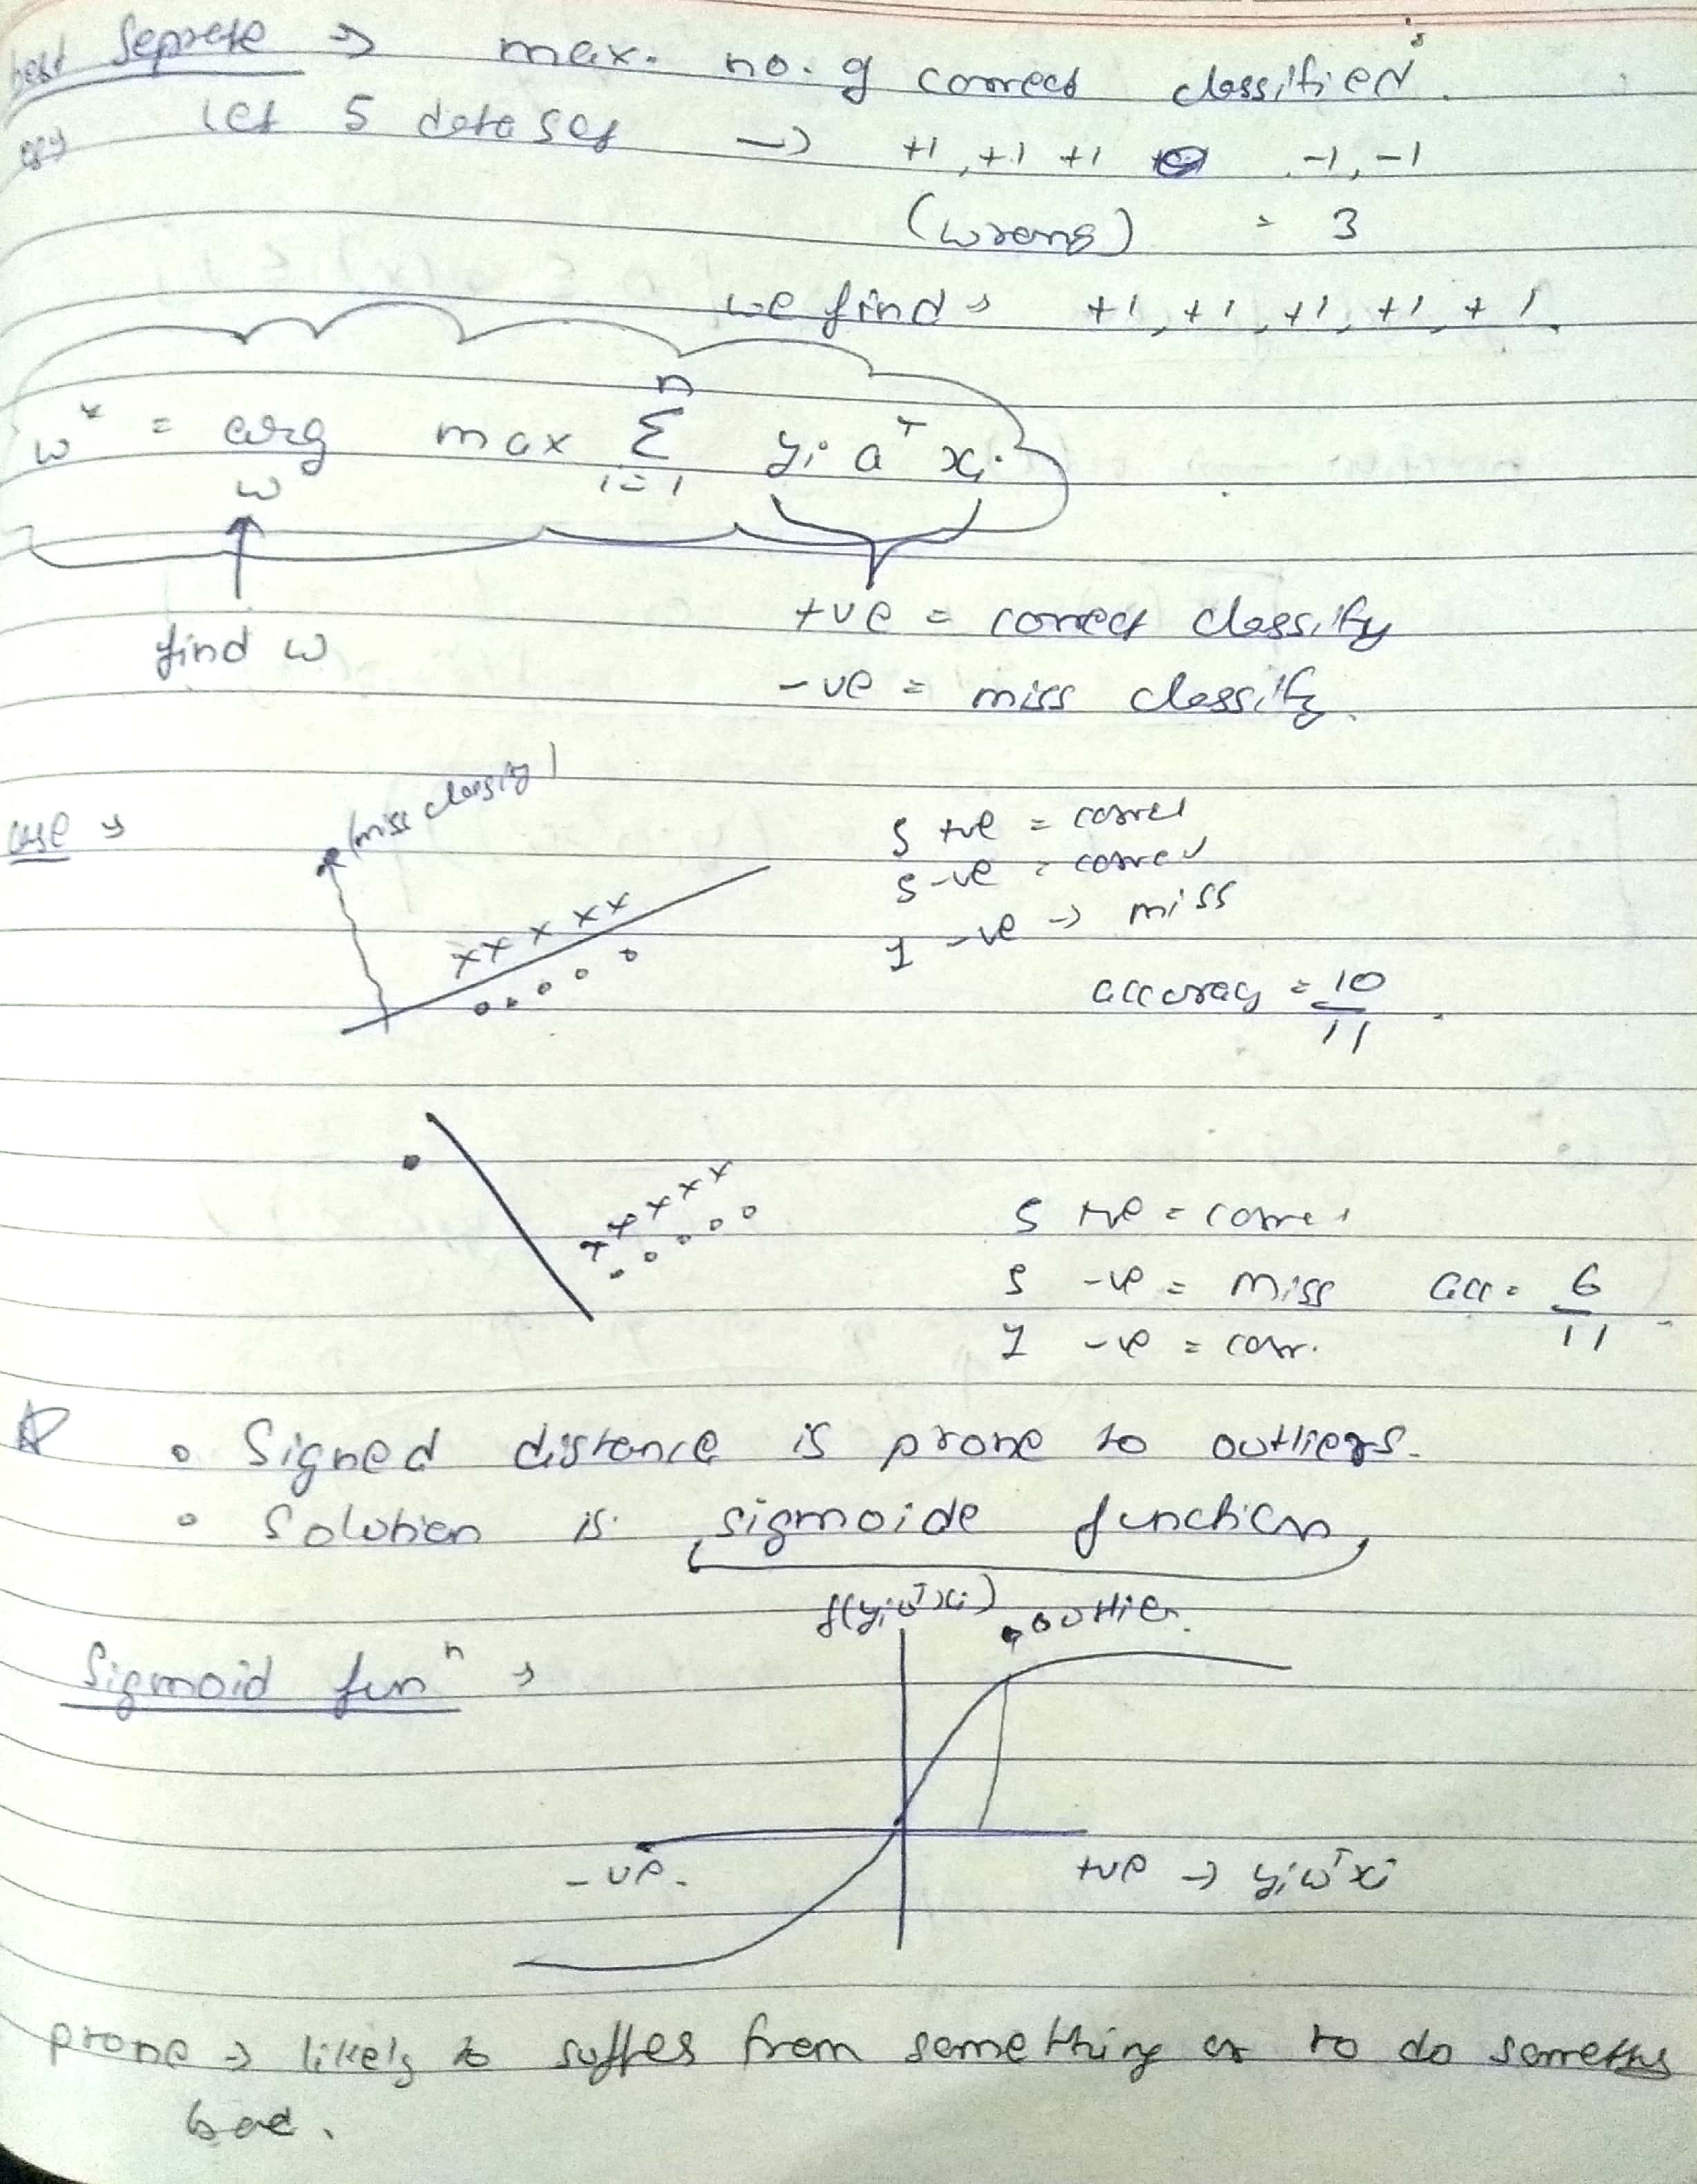 best Seprete => max. no. of correct classified.
eg→ let 5 data set -> +1, +1 +1 -1, -1
(wrong) = 3
we find → +1, +1, +1, +1, +1.
w* = arg max Σ yi aᵀ xi
w i=1 n
find w
+ve = correct classify
-ve = miss classify.
case → (miss classify)
5 +ve = correct
5 -ve = correct
1 -ve -> miss
x x x x x
accuracy = 10/11
x x x x x
5 +ve = corre
5 -ve = miss acc = 6/11
1 -ve = corr.
• Signed distance is prone to outliers.
• Solution is sigmoide function
f(yiwᵀxi) outlier.
Sigmoid funⁿ →
-ve. +ve -> yiwᵀxi
prone => likely to suffer from something or to do
bad.